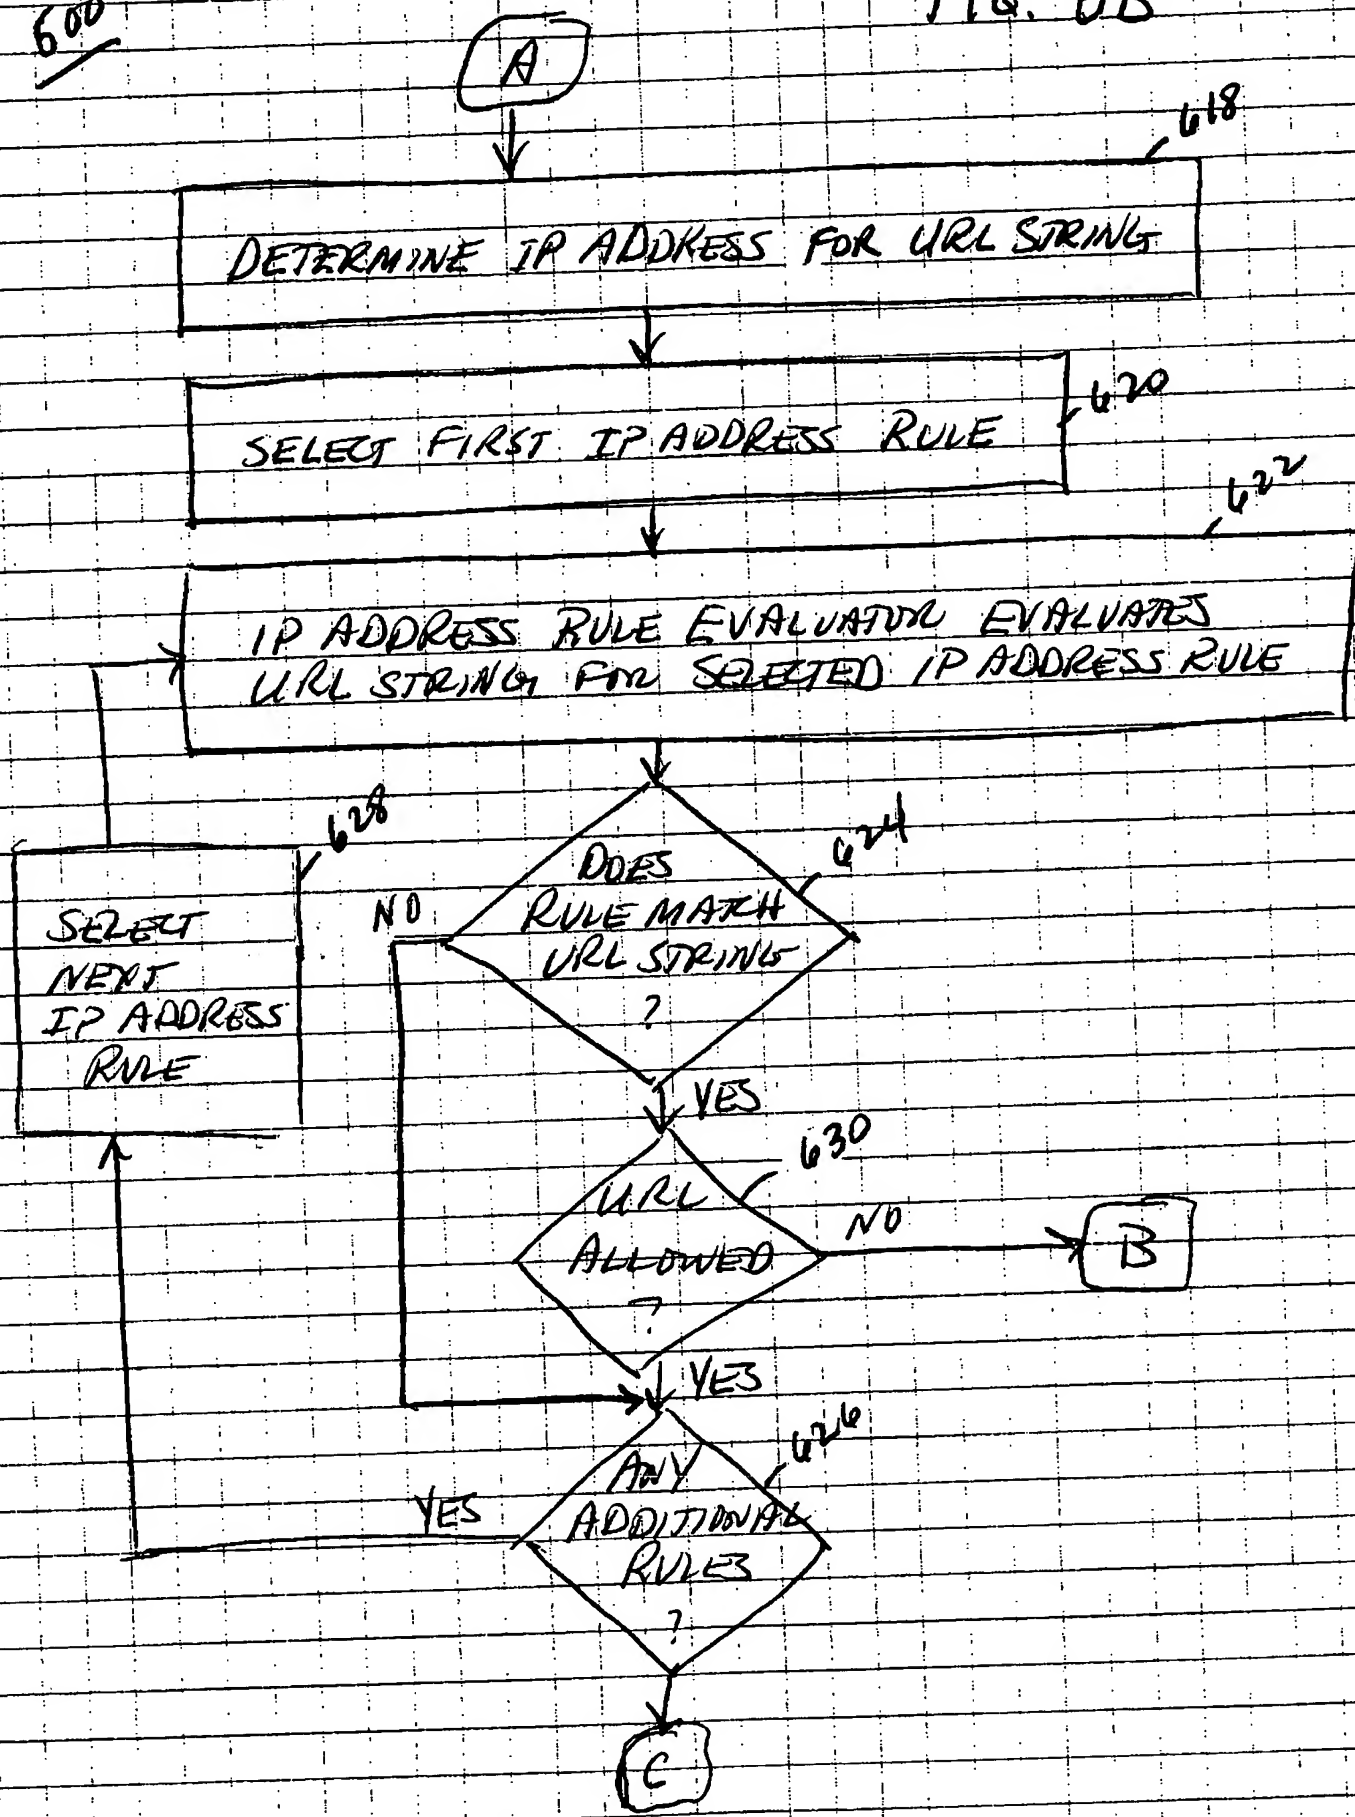 600
FIG. 6B
A
618
DETERMINE IP ADDRESS FOR URL STRING
620
SELECT FIRST IP ADDRESS RULE
622
IP ADDRESS RULE EVALUATOR EVALUATES
URL STRING FOR SELECTED IP ADDRESS RULE
628
SELECT
NEXT
IP ADDRESS
RULE
624
DOES
RULE MATCH
URL STRING
?
NO
YES
630
URL
ALLOWED
?
NO
B
YES
626
ANY
ADDITIONAL
RULES
?
YES
C